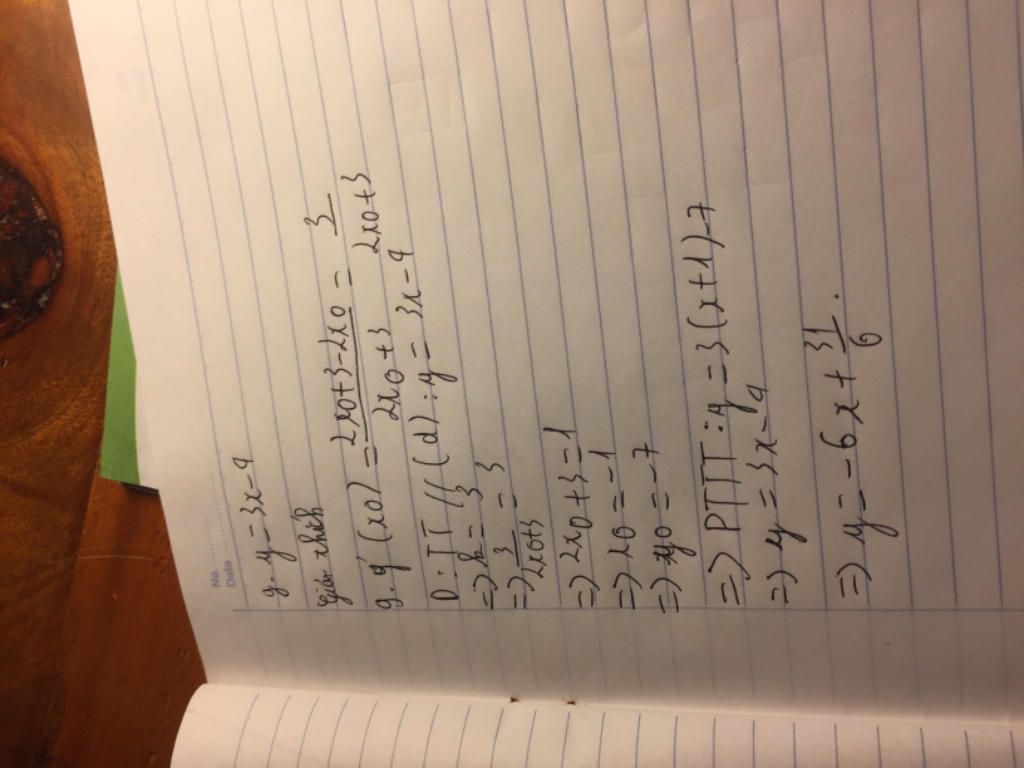 No.
Date
g. y = 3x - 4
giải thích
g. y' (x0) = 2x0+3-2x0 / 2x0+3 = 3 / 2x0+3
D. TT // (d) : y = 3x - 4
=> k = 3
=> 3 / 2x0+3 = 3
=> 2x0 + 3 = 1
=> x0 = -1
=> y0 = -7
=> PTTT : y = 3(x+1) - 7
=> y = 3x - 4
=> y = -6x + 31/6.